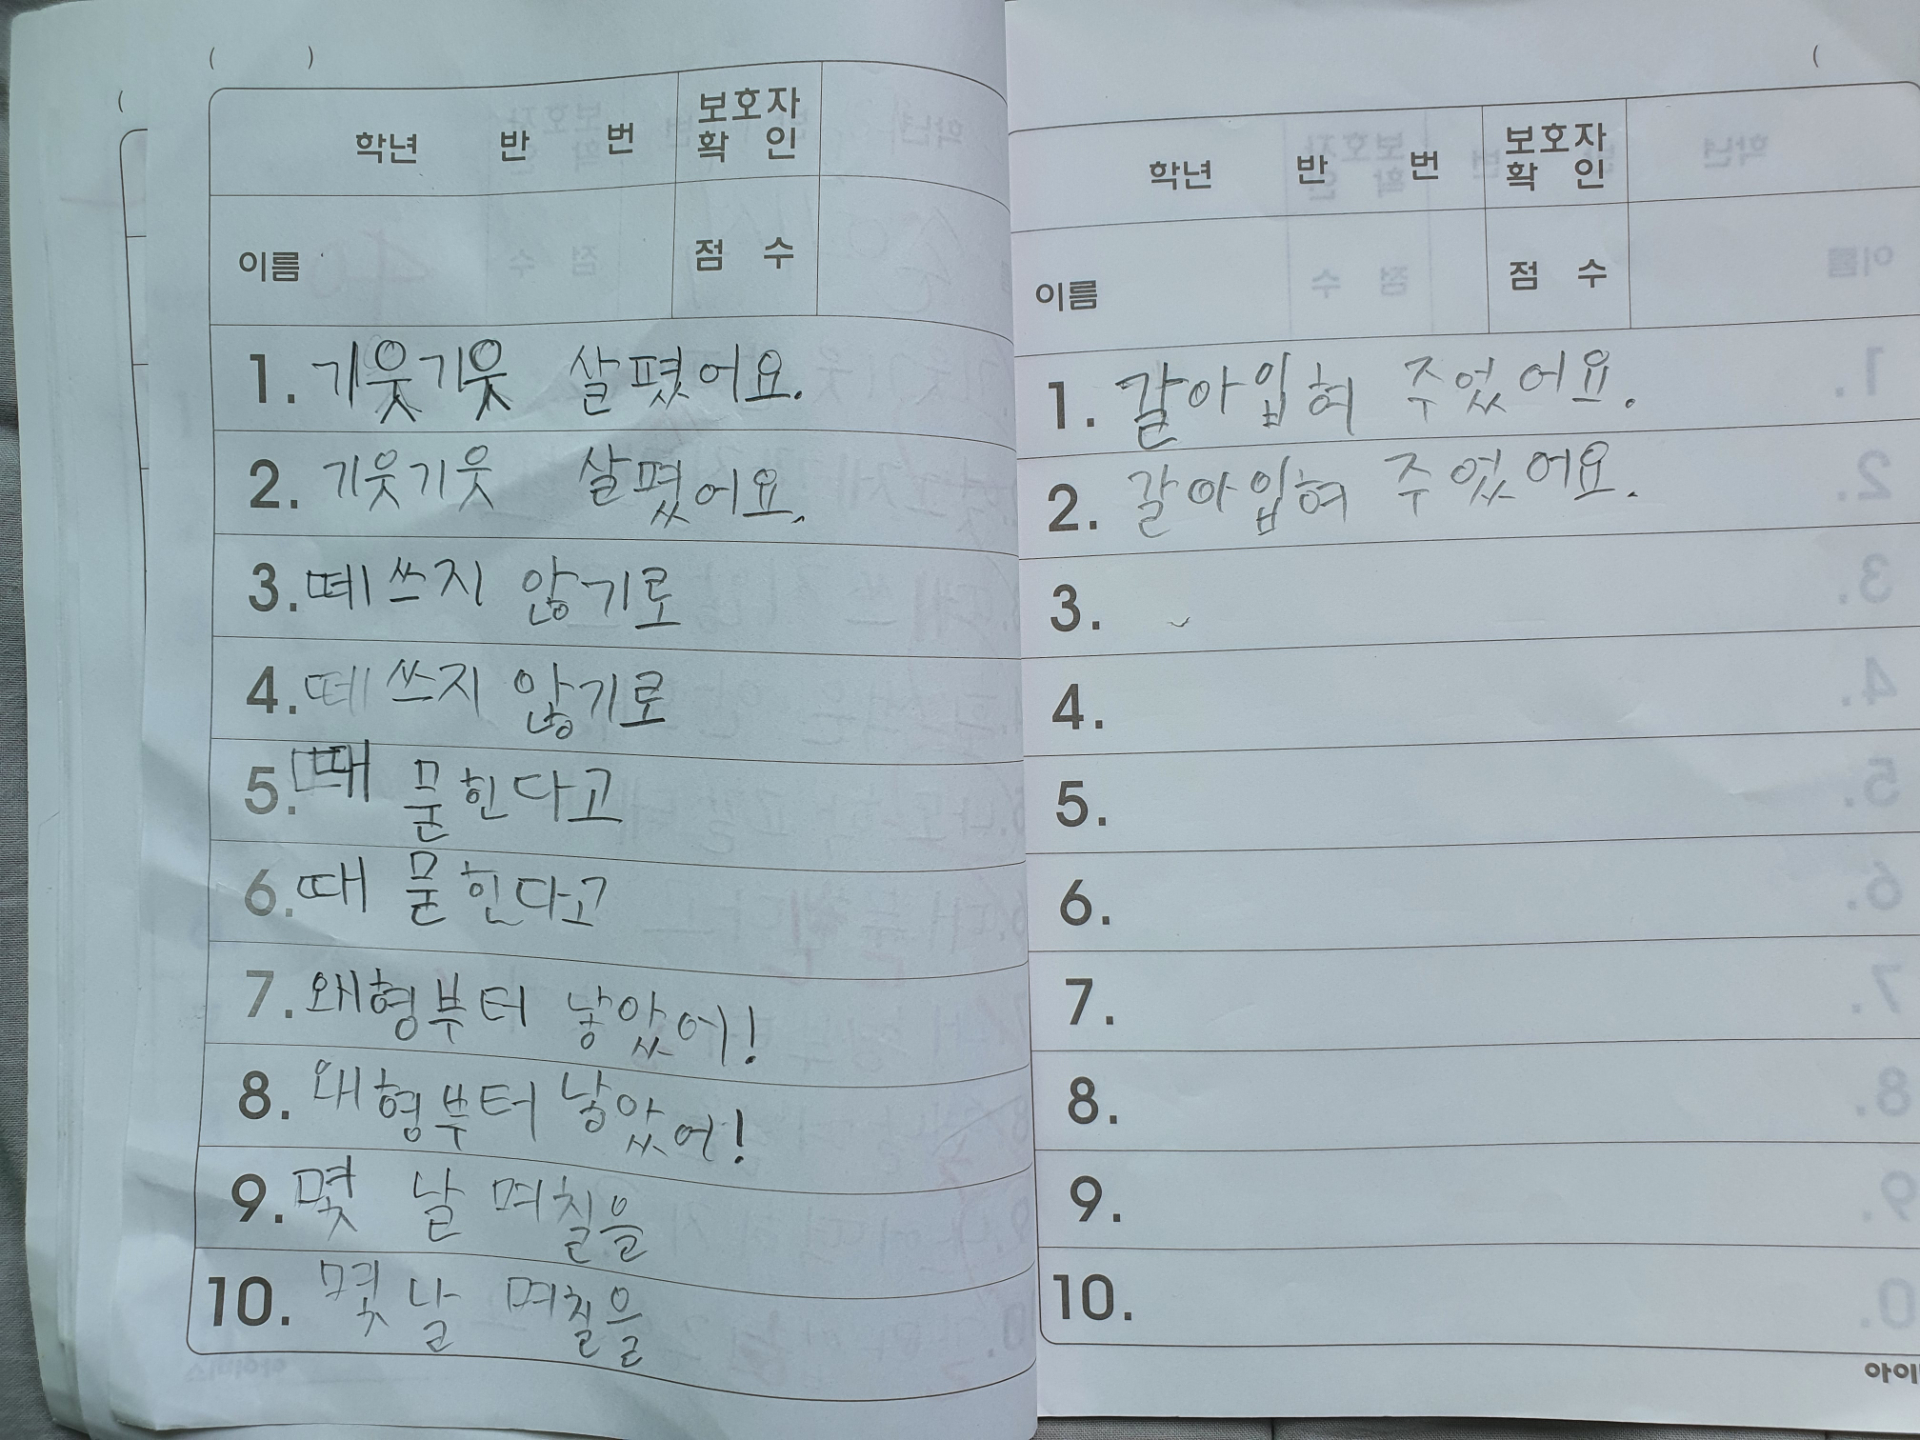 ( )
학년 반 번 보호자 확 인
이름 점 수
1. 기웃기웃 살폈어요.
2. 기웃기웃 살폈어요.
3. 떼쓰지 않기로
4. 떼쓰지 않기로
5. 때 묻힌다고
6. 때 묻힌다고
7. 왜형부터 낳았어!
8. 왜형부터 낳았어!
9. 몇 날 며칠을
10. 몇 날 며칠을
(
학년 반 번 보호자 확 인
이름 점 수
1. 갈아입혀 주었어요.
2. 갈아입혀 주었어요.
3.
4.
5.
6.
7.
8.
9.
10.